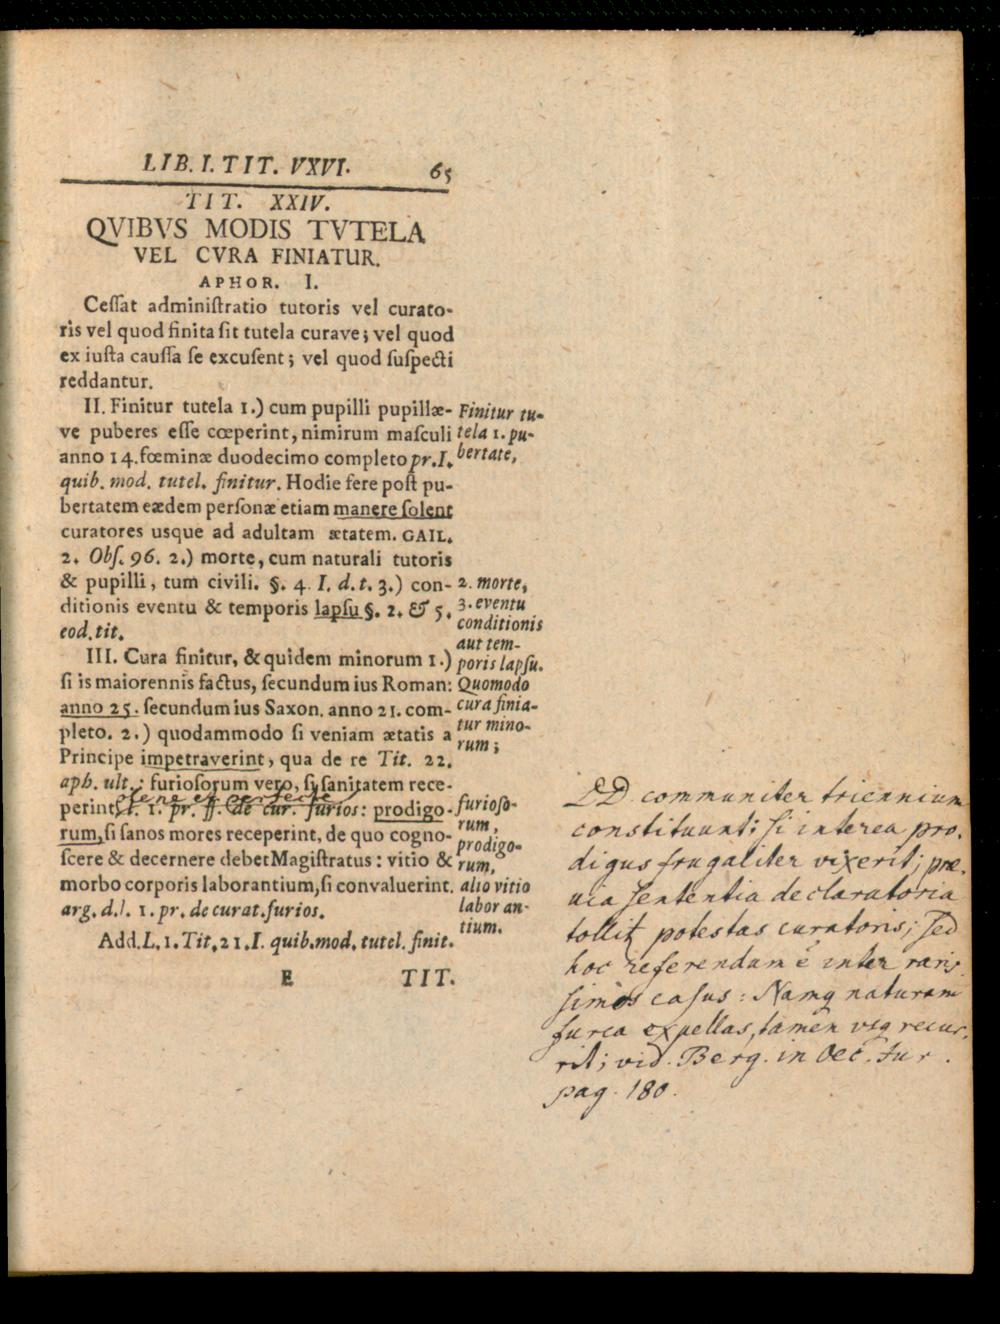 LIB. I. TIT. VXVI. 65
TIT. XXIV.
QVIBVS MODIS TVTELA
VEL CVRA FINIATUR.
APHOR. I.
Ceſſat adminiſtratio tutoris vel curato-
ris vel quod finita ſit tutela curave; vel quod
ex iuſta cauſſa ſe excuſent; vel quod ſuſpecti
reddantur.
II. Finitur tutela 1.) cum pupilli pupillæ-
ve puberes eſſe cœperint, nimirum maſculi
anno 14. fœminæ duodecimo completo pr. I.
quib. mod. tutel. finitur. Hodie fere poſt pu-
bertatem eædem perſonæ etiam manere ſolent
curatores usque ad adultam ætatem. GAIL.
2. Obſ. 96. 2.) morte, cum naturali tutoris
& pupilli, tum civili. §. 4. I. d. t. 3.) con-
ditionis eventu & temporis lapſu §. 2. & 5.
eod. tit.
III. Cura finitur, & quidem minorum 1.)
ſi is maiorennis factus, ſecundum ius Roman:
anno 25. ſecundum ius Saxon. anno 21. com-
pleto. 2.) quodammodo ſi veniam ætatis a
Principe impetraverint, qua de re Tit. 22.
aph. ult.: furioſorum vero, ſi ſanitatem rece-
plene et perfecte
perint, l. 1. pr. ff. de cur. furios: prodigo-
rum, ſi ſanos mores receperint, de quo cogno-
ſcere & decernere debet Magiſtratus: vitio &
morbo corporis laborantium, ſi convaluerint.
arg. d. l. 1. pr. de curat. furios.
Add. L. 1. Tit. 21. I. quib. mod. tutel. finit.
E TIT.
Finitur tu-
tela 1. pu-
bertate,
2. morte,
3. eventu
conditionis
aut tem-
poris lapſu.
Quomodo
cura finia-
tur mino-
rum;
furioſo-
rum,
prodigo-
rum,
alio vitio
laboran-
tium.
DD. communiter triennium
constituunt; si interea pro-
digus frugaliter vixerit; præ-
via sententia declaratoria
tollit potestas curatoris; sed
hoc referendum ē inter raris-
simos casus: Namq naturam
furca expellas, tamen usq recur-
rit; vid. Berg. in Oec. Jur.
pag. 180.